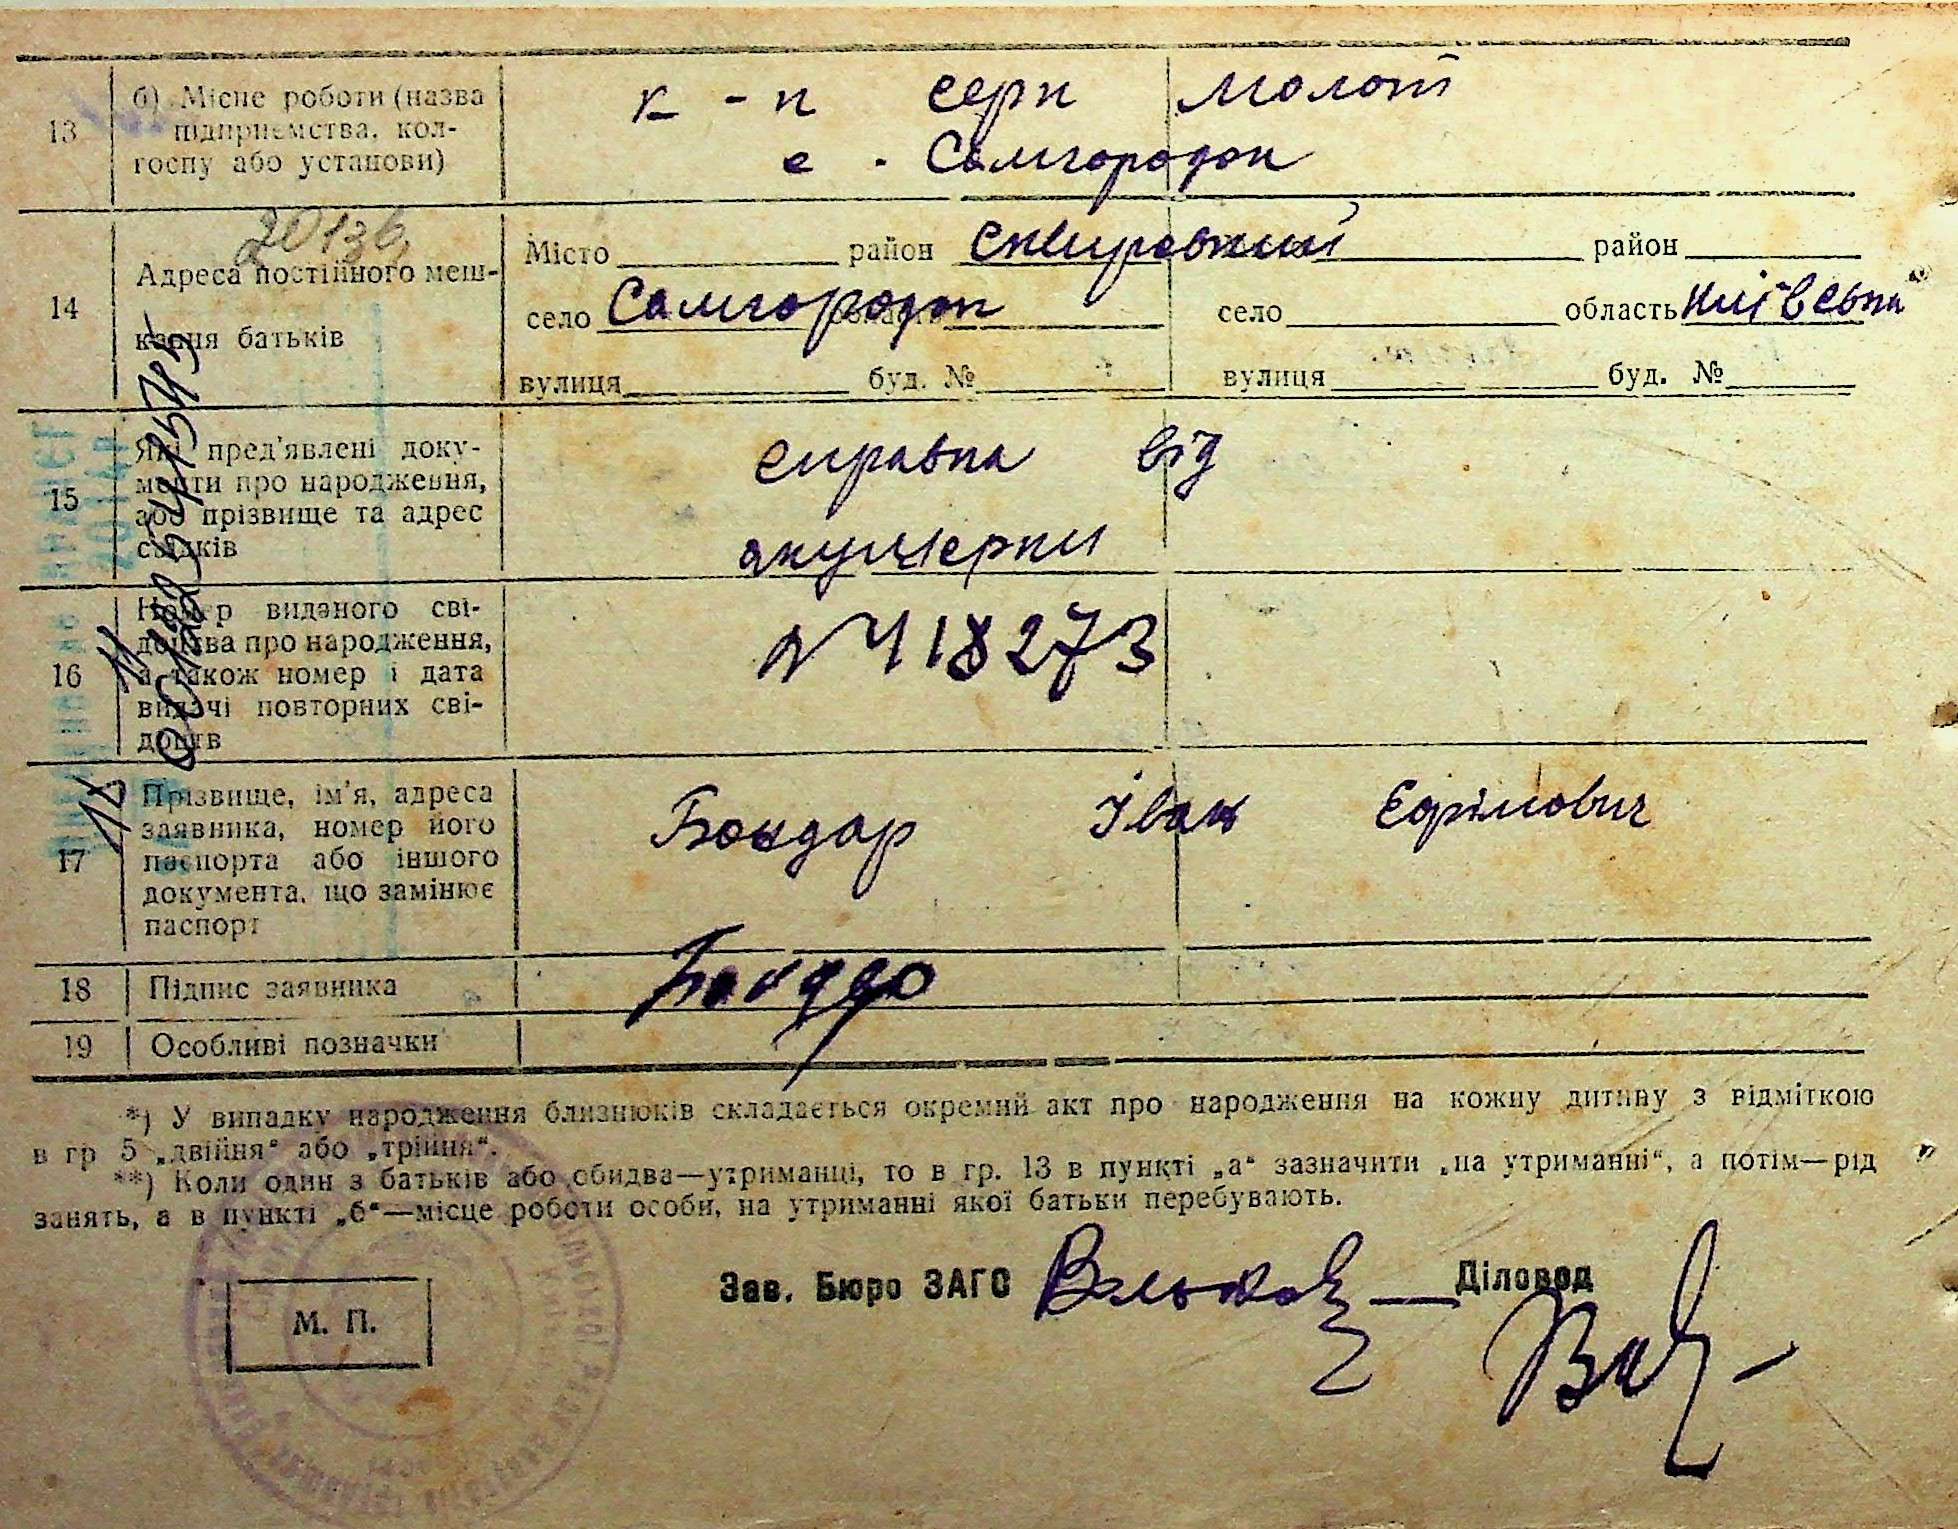 13 б) Місце роботи (назва підприємства, колгоспу або установи)
к-п серп молот
с. Самгородок
20136
14 Адреса постійного мешкання батьків
Місто район Сквирський район
село Самгородок область село область Київська
вулиця буд. № вулиця буд. №
15 Які пред'явлені документи про народження, або прізвище та адрес свідків
справка від
акушерки
16 Номер виданого свідоцтва про народження, а також номер і дата видачі повторних свідоцтв
№ 418273
17 Прізвище, ім'я, адреса заявника, номер його паспорта або іншого документа, що замінює паспорт
Бондар Іван Єфімович
18 Підпис заявника
19 Особливі позначки
*) У випадку народження близнюків складається окремий акт про народження на кожну дитину з відміткою
в гр 5 „двійня“ або „трійня“.
**) Коли один з батьків або обидва—утриманці, то в гр. 13 в пункті „а“ зазначити „на утриманні“, а потім—рід
занять, а в пункті „б“—місце роботи особи, на утриманні якої батьки перебувають.
Зав. Бюро ЗАГС Діловод
М. П.